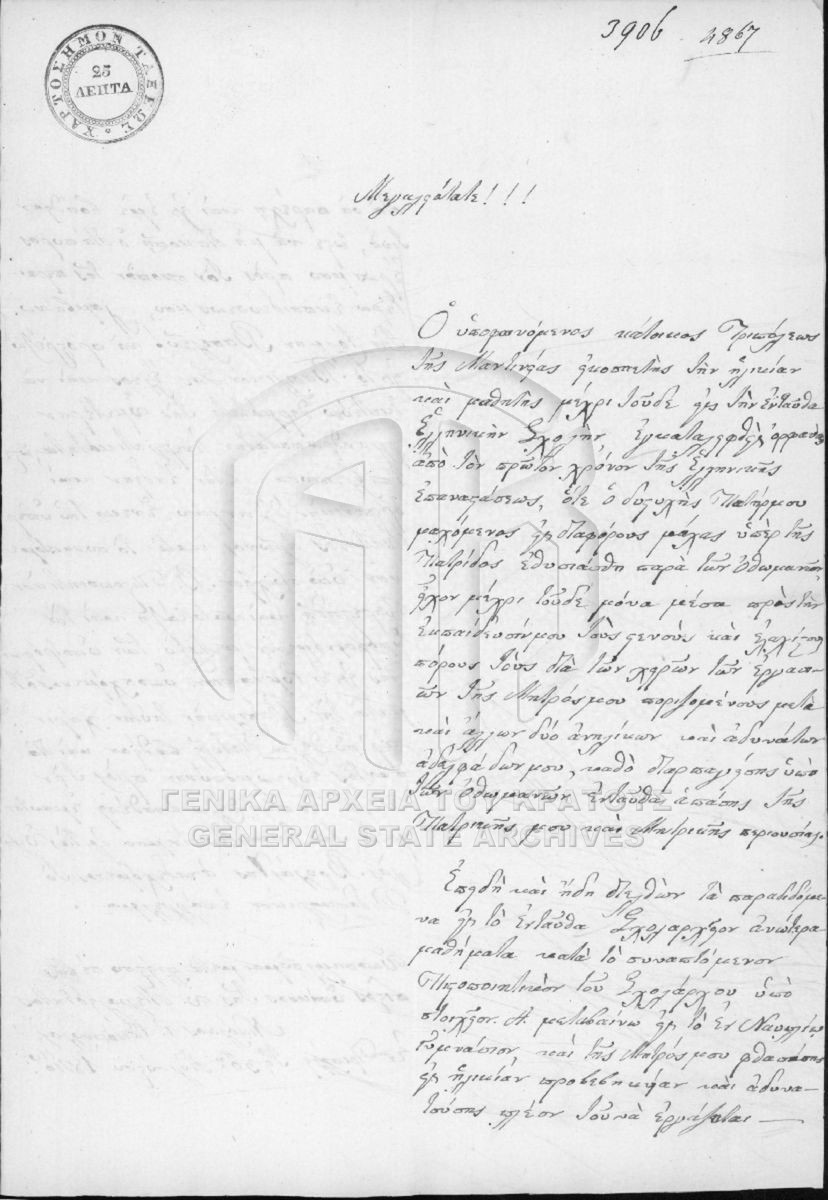 ΧΑΡΤΟΣΗΜΟΝ ΤΑΞΕΩΣ
25
ΛΕΠΤΑ
3906 4867
Μεγαλειότατε!!!
Ὁ ὑποφαινόμενος κάτοικος Τριπόλεως
τῆς Μαντινείας εἰκοσπετὴς τὴν ἡλικίαν
καὶ μαθητὴς μέχρι τοῦδε εἰς τὴν ἐνταῦθα
Ἑλληνικὴν Σχολὴν, ἐγκαταλειφθεὶς ὀρφανὸς
ἀπὸ τὸν πρῶτον χρόνον τῆς Ἑλληνικῆς
ἐπαναστάσεως, ὅτε ὁ δυστυχὴς Πατήρ μου
μαχόμενος εἰς διαφόρους μάχας ὑπὲρ τῆς
Πατρίδος ἐθυσιάσθη παρὰ τῶν Ὀθωμανῶν,
εἶχον μέχρι τοῦδε μόνα μέσα πρὸς τὴν
ἐκπαίδευσίν μου τοὺς στενοὺς καὶ ἐλαχίστους
πόρους τοὺς διὰ τῶν χειρῶν τῶν ἐργασι-
ῶν τῆς Μητρός μου ποριζομένους μετὰ
καὶ ἄλλων δύο ἀνηλίκων καὶ ἀδυνάτων
ἀδελφάδων μου, καθὸ διαρπαγείσης ὑπὸ
τῶν Ὀθωμανῶν ἐνταῦθα ἁπάσης τῆς
Πατρικῆς μου καὶ Μητρικῆς περιουσίας.
ΓΕΝΙΚΑ ΑΡΧΕΙΑ ΤΟΥ ΚΡΑΤΟΥΣ
GENERAL STATE ARCHIVES
Ἐπειδὴ καὶ ἤδη διελθὼν τὰ παραδιδόμε-
να εἰς τὸ ἐνταῦθα Σχολαρχεῖον ἀνώτερα
μαθήματα κατὰ τὸ συναπτόμενον
Πιστοποιητικὸν τοῦ Σχολάρχου ὑπὸ
στοιχεῖον Α. μεταβαίνω εἰς τὸ ἐν Ναυπλίῳ
Γυμνάσιον, καὶ τῆς Μητρός μου φθασάσης
εἰς ἡλικίαν προβεβηκυῖαν καὶ ἀδυνα-
τούσης πλέον τοῦ νὰ ἐργάζηται